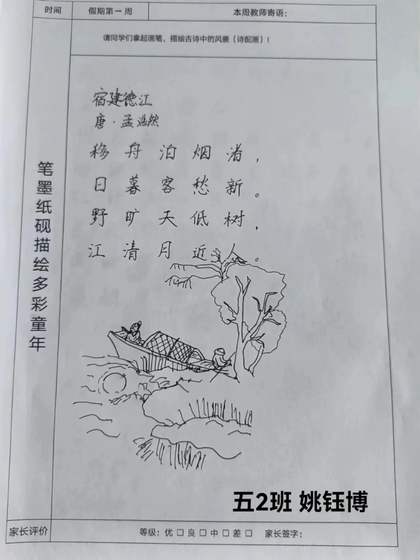 时间 假期第一周 本周教师寄语：
请同学们拿起画笔，描绘古诗中的风景（诗配画）！
笔墨纸砚描绘多彩童年
宿建德江
唐·孟浩然
移舟泊烟渚，
日暮客愁新。
野旷天低树，
江清月近人。
五2班 姚钰博
家长评价 等级：优□ 良□ 中□ 差□ 家长签字：